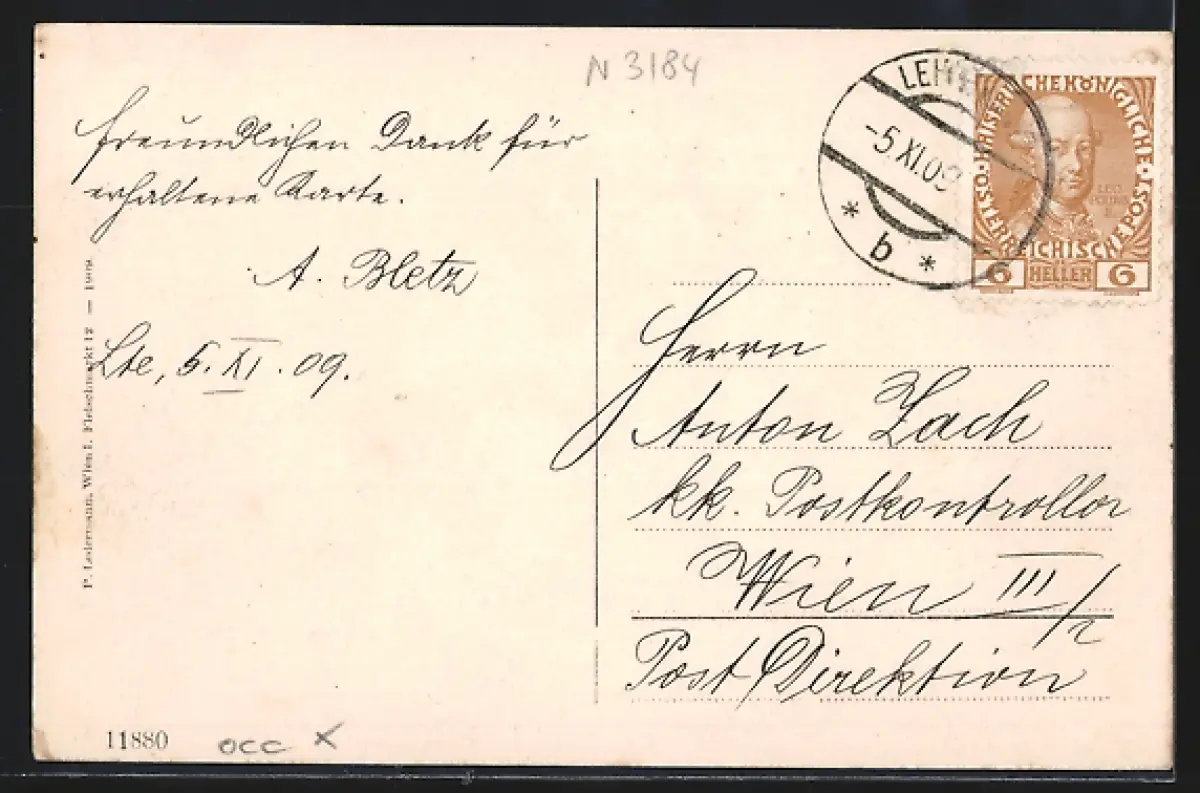 N 3184
freundlichen Dank für
erhaltene Karte.
A. Bletz
Lte, 5. XI. 09.
P. Ledermann, Wien I. Fleischmarkt 12 — 1909
11880
occ x
-5.XI.09
* b *
KAISERLICHE KÖNIGLICHE
ÖSTERREICHISCHE POST
6 HELLER 6
Herrn
Anton Zach
kk. Postkontrollor
Wien III/2
Post Direktion